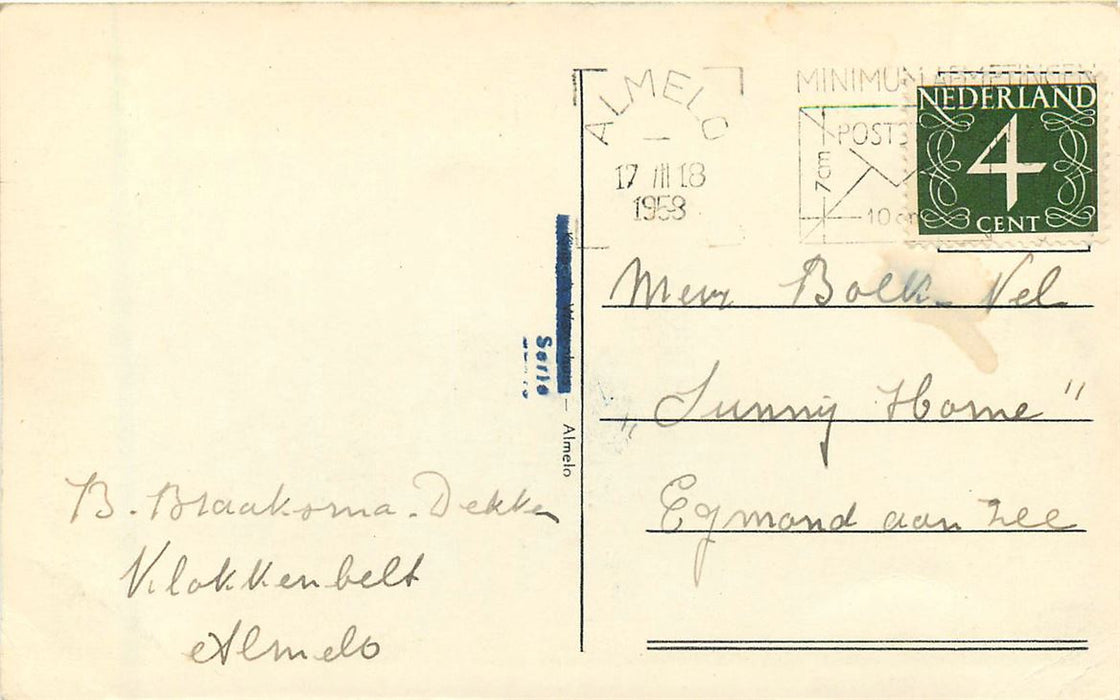 ALMELO
17 III 18
1958
MINIMUM AFMETINGEN
POSTS
7 cm
10 cm
NEDERLAND
4
CENT
Mevr Bolk-Nel
"Sunny Home"
Egmond aan Zee
Serie
– Almelo
B. Braaksma-Dekker
Klokkenbelt
Almelo